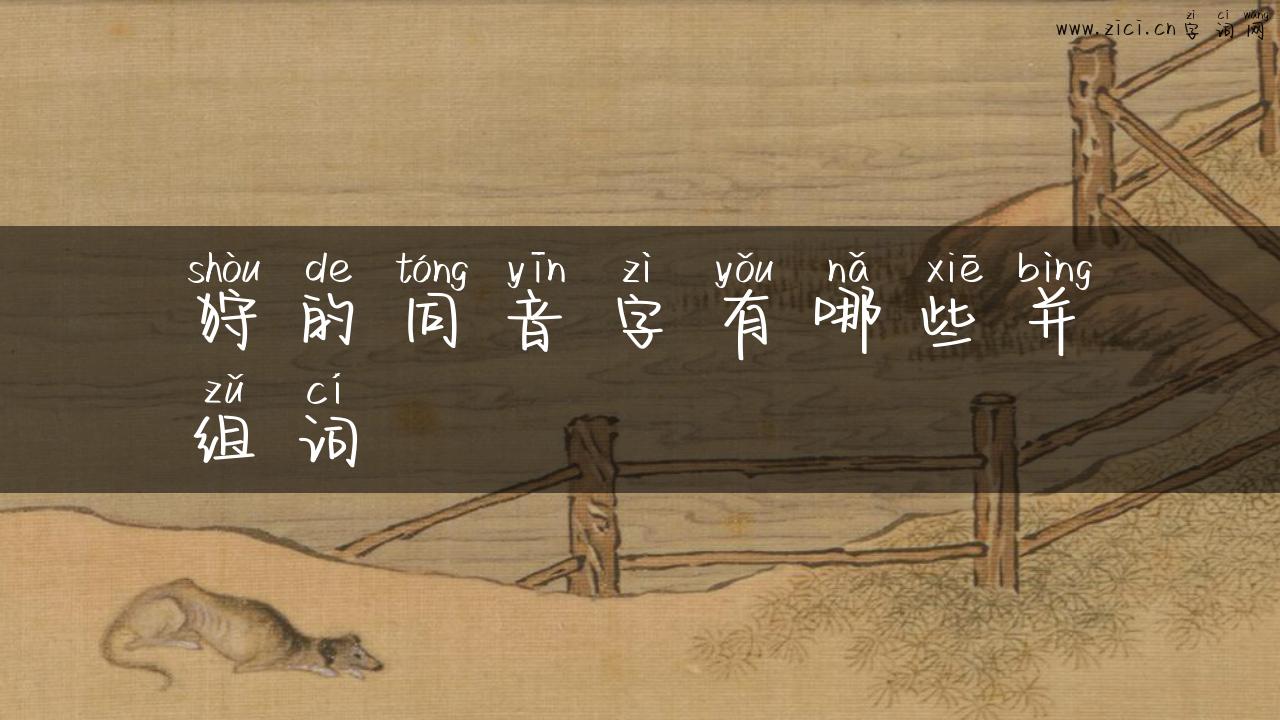 zi ci wang
www.zici.cn字词网
shòu de tóng yīn zì yǒu nǎ xiē bìng
狩的同音字有哪些并
zǔ cí
组词